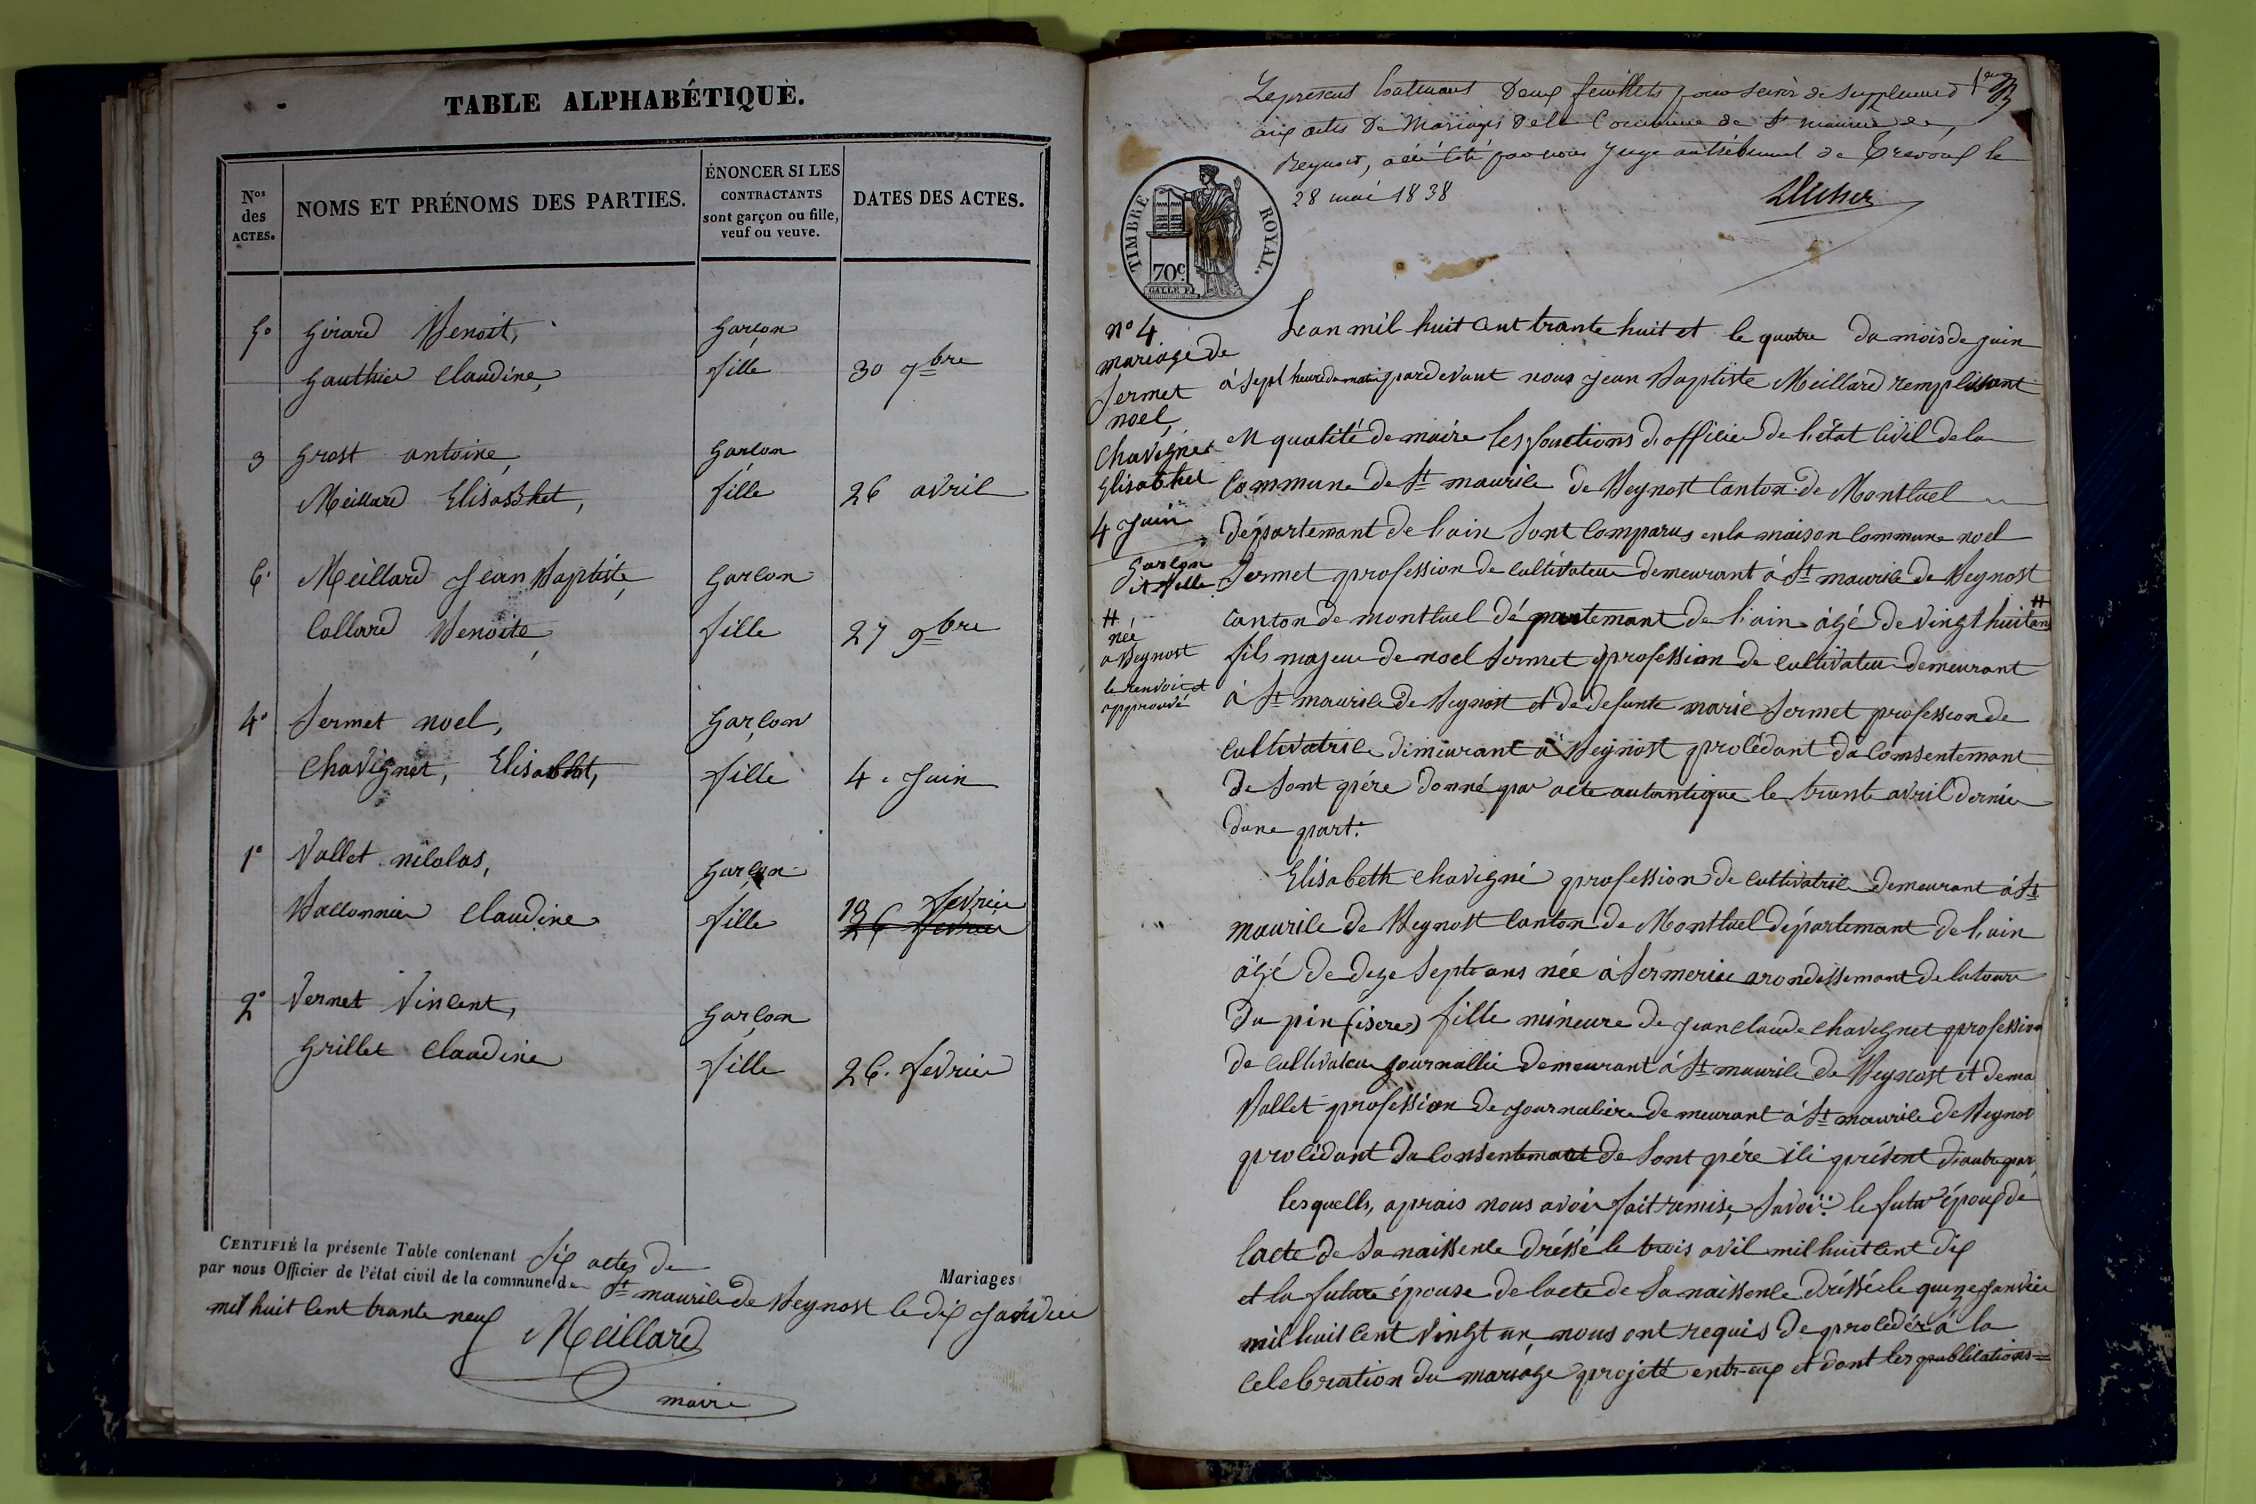 TABLE ALPHABÉTIQUE.
Nos des ACTES.
NOMS ET PRÉNOMS DES PARTIES.
ÉNONCER SI LES
CONTRACTANTS
sont garçon ou fille,
veuf ou veuve.
DATES DES ACTES.
5° Girard Benoit, Garçon
Gauthier Claudine, fille 30 7bre
3 Grost antoine, Garçon
Meillard Elisabhet, fille 26 avril
6. Meillard Jean Baptiste, Garçon
Collard Benoite, fille 27 9bre
4° Sermet noel, Garçon
Chavignet, Elisabhet, fille 4. Juin
1° Vallet nicolas, Garçon
Claudine fille 19 fevrier
26 fevrier
2° Vernet Vincent, Garçon
Grillet Claudine fille 26. fevrier
CERTIFIÉ la présente Table contenant Six actes de Mariages
par nous Officier de l'état civil de la commune de St maurice de Beynost le dix Janvier
mil huit cent trante neuf
Meillard
maire
Le présent Contenant Deux feuillets pour servir de supplement
aux actes De Mariages De la Commune de St maurice de
Beynost, a été coté par nous Juge au tribunal de Trevoux le
28 mai 1838
TIMBRE ROYAL.
70c
GALLE F.
n° 4
mariage de
Sermet
noel,
Chavignet
Elisabhet
4 Juin
Garçon
et fille
#
née
a Beynost
le renvoi et
approuvé
Lan mil huit cent trante huit et le quatre du mois de juin
à sept heure du matin pardevant nous Jean Baptiste Meillard remplisant
en qualité de maire les fonctions d'officier de l'état civil de la
Commune de St maurice de Beynost Canton de Montluel
département de l'ain sont comparus en la maison commune noel
Sermet profession de cultivateur demeurant à St maurice de Beynost
canton de montluel département de l'ain âgé de vingt huit ans #
fils majeur de noel Sermet profession de cultivateur demeurant
à St maurice de Beynost et de defunte marie Sermet profession de
cultivatrice dimeurant à Beynost procédant du consentemant
de sont père donné par acte autantique le trante avril dernier
dune part.
Elisabeth chavigné profession de cultivatrice demeurant à St
maurice de Beynost canton de Montluel département de l'ain
âgé de deze sept ans née à Sermerieu arondissemant de latour
du pin (isere) fille mineure de Jean claude chavignet profession
de cultivateur journallié demeurant à St maurice de Beynost et de ma
Vallet profession de journaliere demeurant à St maurice de Beynos
procédant du consentemant de sont père ici présent d'autre part,
lesquells, aprais nous avoir fait remise, savoir: le futur époux de
lacte de sa naissence dréssé le trois avil mil huit cent dix
et la future épouse de lacte de sa naissence dréssé le quinze janvier
mil huit cent vingt un, nous ont requis de procédér à la
celebration du mariage projeté entr-eux et dont les publications